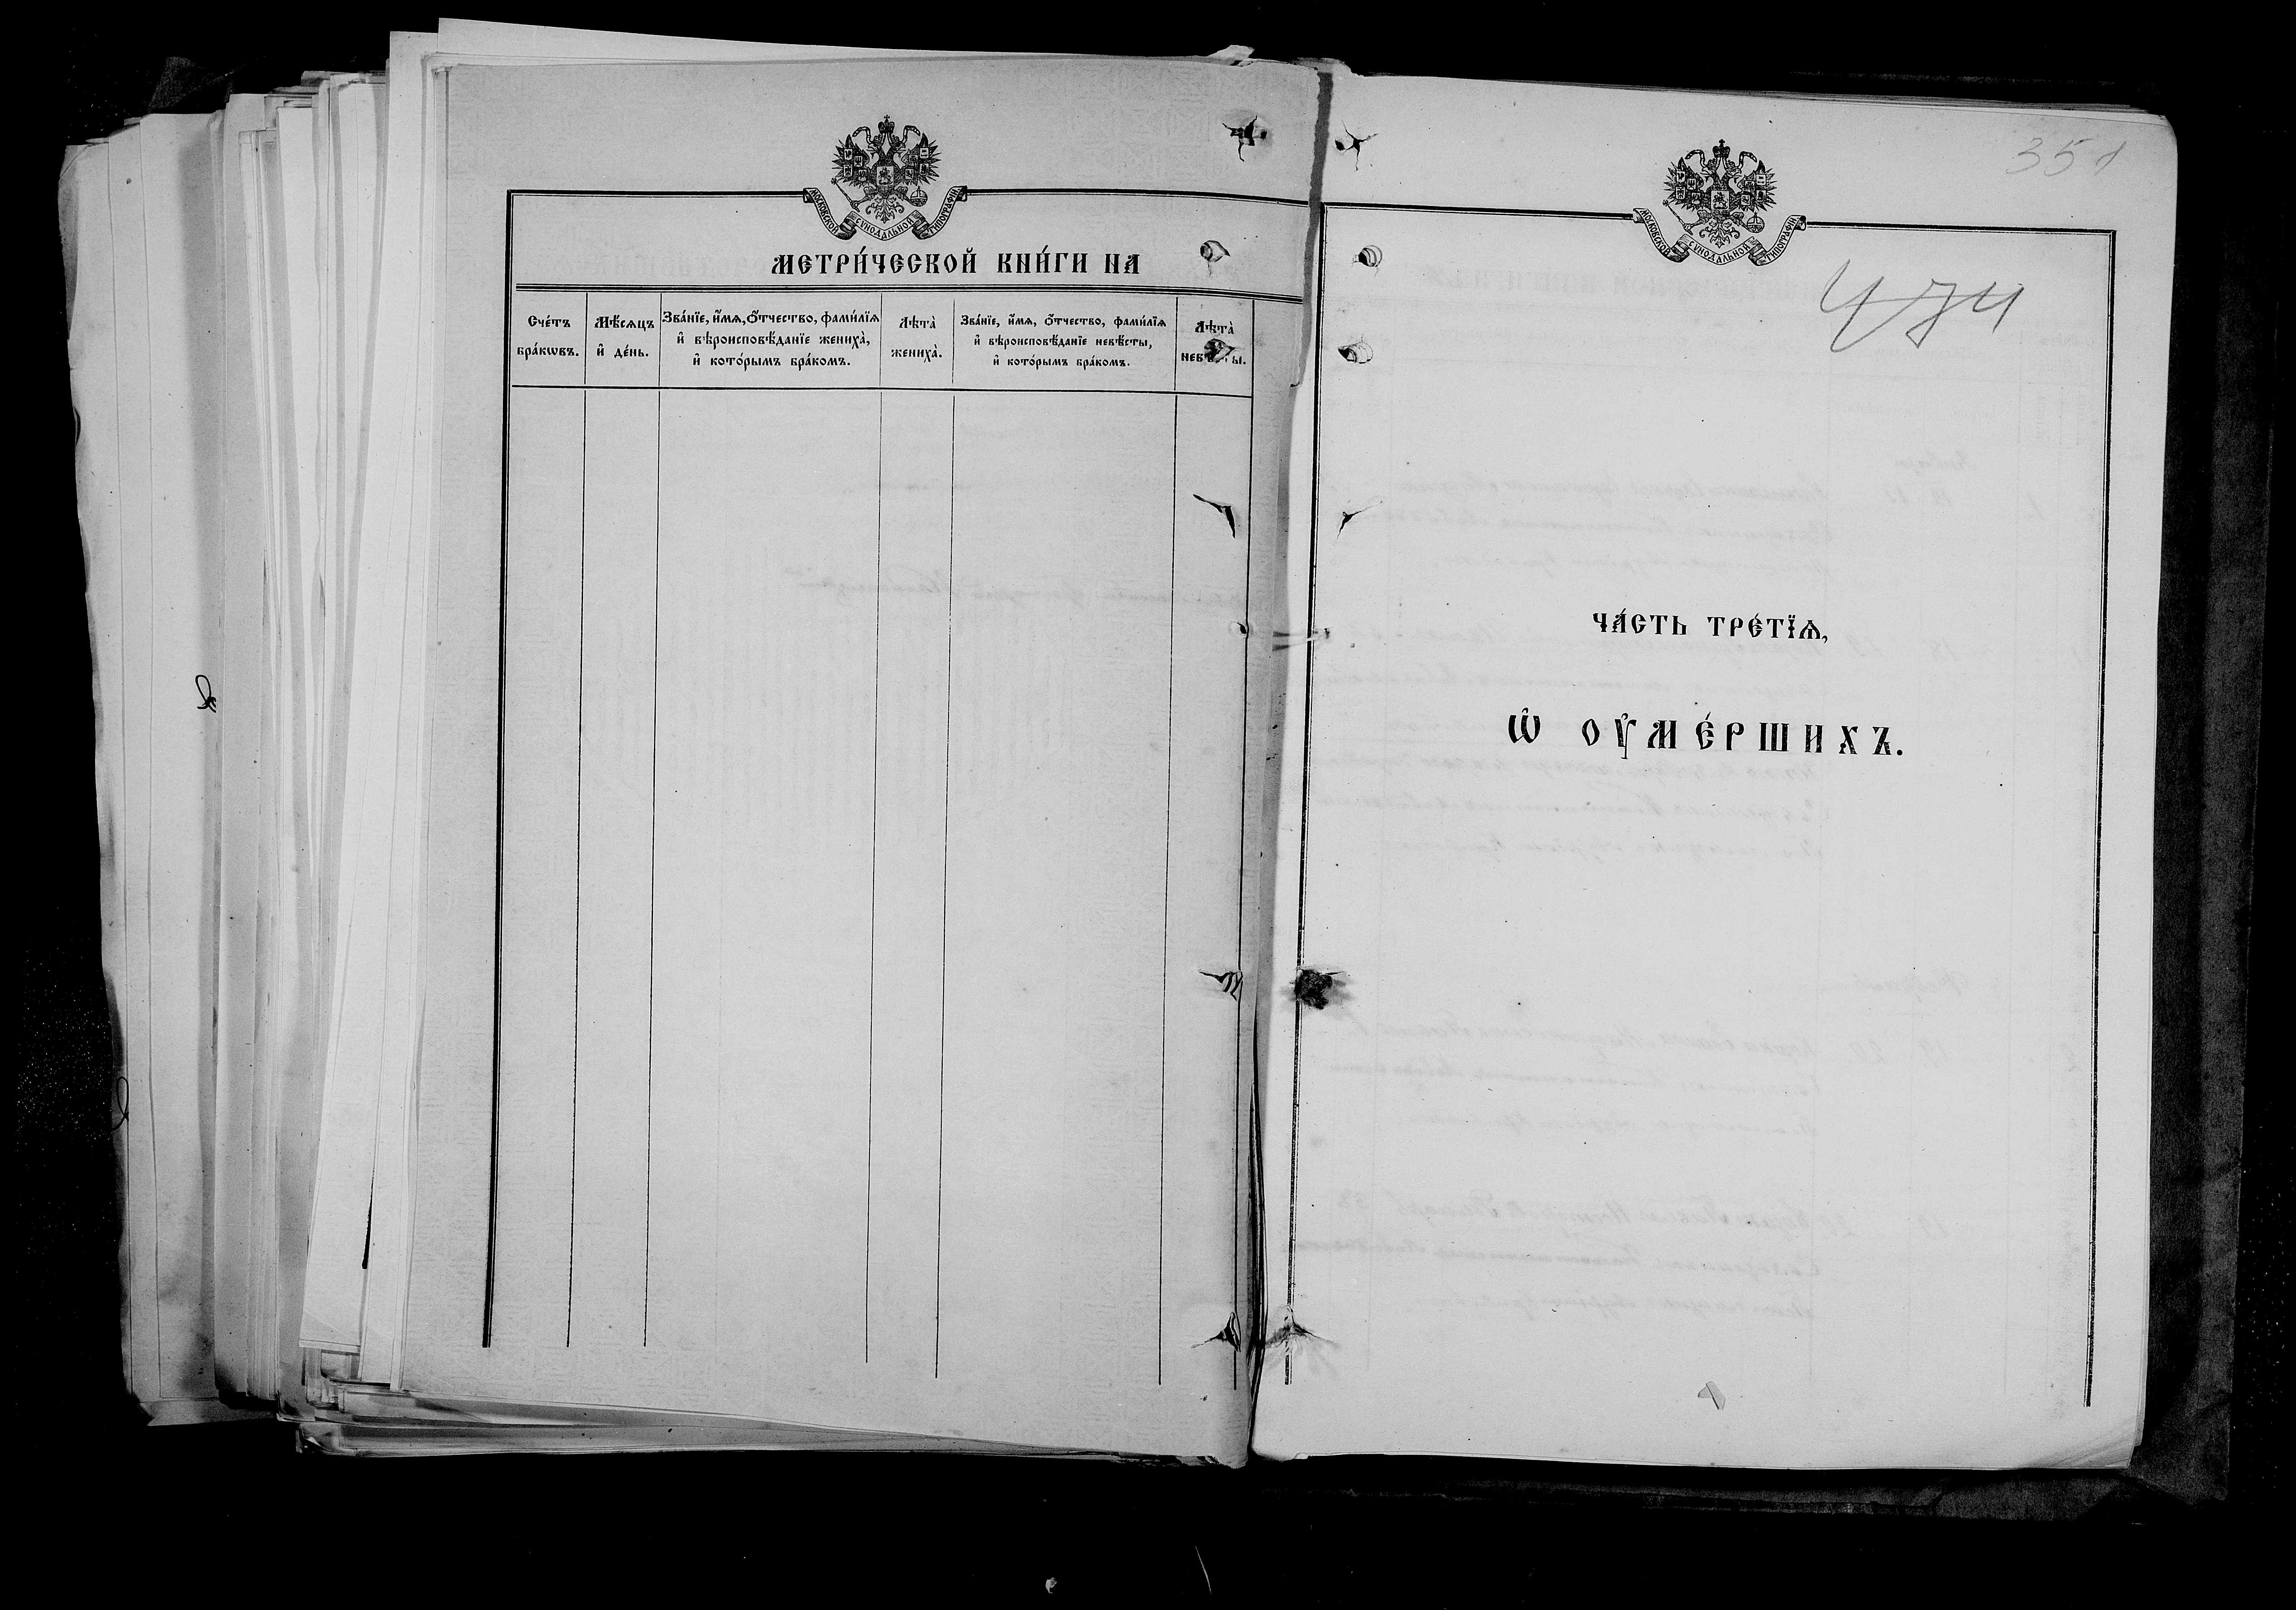 МОСКОВСКОЙ СѴНОДАЛЬНОЙ ТИПОГРАФІИ
МЕТРИ́ЧЕСКОЙ КНИ́ГИ НА
Сче́тъ бра́кѡвъ.
Мѣ́сяцъ и҆ де́нь.
Зва́нїе, и҆́мя, ѻ҆́тчество, фами́лїя
и҆ вѣроисповѣ́данїе жениха̀,
и҆ кото́рымъ бра́комъ.
Лѣта̀ жениха̀.
Зва́нїе, и҆́мя, ѻ҆́тчество, фами́лїя
и҆ вѣроисповѣ́данїе невѣ́сты,
и҆ кото́рымъ бра́комъ.
Лѣта̀ невѣ́сты.
351
МОСКОВСКОЙ СѴНОДАЛЬНОЙ ТИПОГРАФІИ
ЧА́СТЬ ТРЕ́ТЇѦ,
Ѡ҆ ОУ҆МЕ́РШИХЪ.